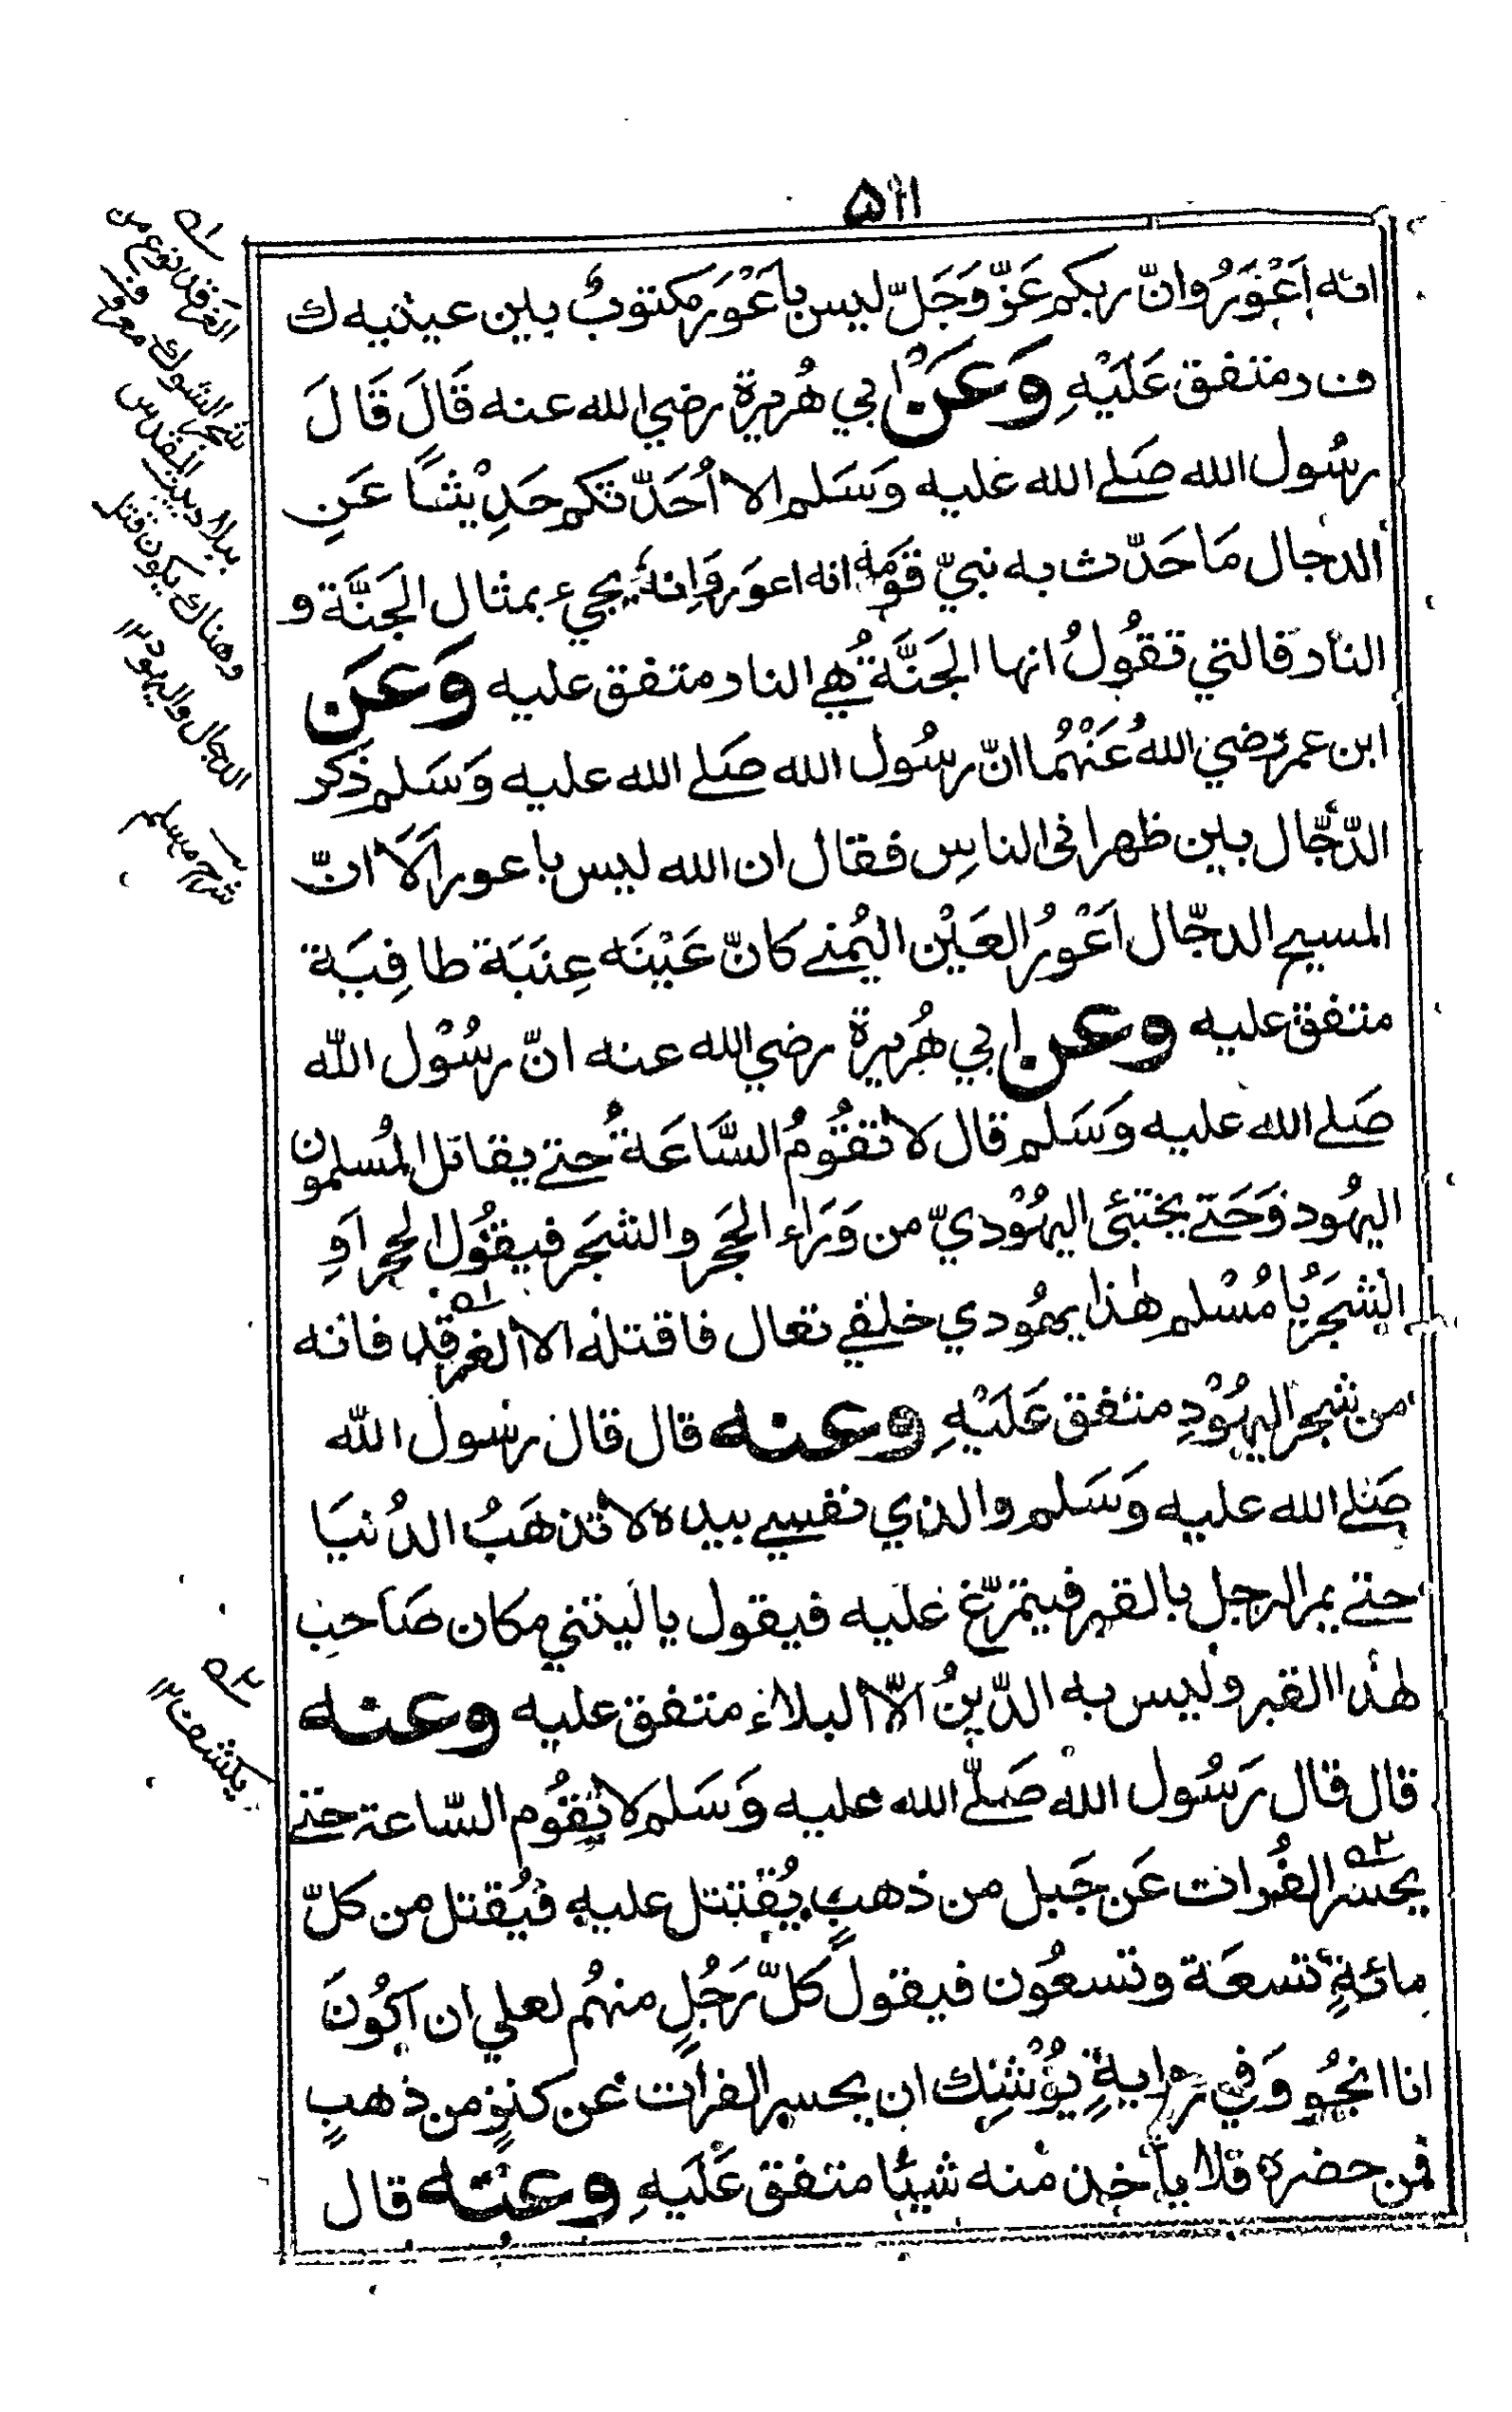 ٥١١
انه اَعْوَرُ وانّ ربكم عَزّ وَجَلّ ليس بأعْوَر مكتوبٌ بين عينيه ك
ف ر متفق عَلَيْهِ وَعَنْ ابي هُريرة رضي الله عنه قَالَ قَالَ
رسُول الله صَلے الله عليه وَسَلم الا اُحَدّثكم حَدِيْثًا عَنِ
الدجال مَا حَدّث به نبيّ قَوْمَه انه اعوَر وَاِنهُ يجيء بمثال الجَنَّة و
النار فالتي تقُولُ انها الجَنَّةُ هِے النار متفق عليه وَعَن
ابن عمر رَضي اللهُ عَنْهُمَا انّ رسُول الله صَلے الله عليه وَسَلم ذَكر
الدّجّال بين ظهراني الناس فقال ان الله ليس باعور اَلَا انّ
المسيح الدجّال اَعْوَرُ العَيْن اليُمْنے كانّ عَيْنَه عِنَبَة طافِيَة
متفق عليه وعن ابي هُريرة رضي الله عنه انّ رسُوْل الله
صَلے الله عليه وَسَلم قال لا تقُوْمُ السَّاعَةُ حتے يقاتل المُسلمون
اليهُود وَحَتے يختبئ اليهُوْديّ من وَرَاء الحَجَر والشجَر فيقُول الحجر اَوِ
الشجَرُ يا مُسْلم هٰذا يهُودي خلفے تعال فاقتله الا الغرقد فانه
من شجر اليهُوْدِ متفق عَلَيْهِ وعنه قال قال رسُول الله
صَلے الله عليه وَسَلم والذي نفسے بيده لا تذهَبُ الدُنيَا
حتے يمر الرجل بالقبر فيتمَرّغ عَليه فيقول يا ليتني مكان صَاحب
هٰذا القبر وليس به الدّينُ الّا البلاء متفق عليه وعنه
قال قال رَسُول الله صَلّے الله عليه وَسَلم لا تقُوم السّاعة حتے
يحسر الفُرات عَن جَبل من ذهبٍ يُقتتل عليه فيُقتل من كلّ
مائةٍ تسعَة وتسعُون فيقول كلّ رَجُلٍ منهُم لعلي ان اكُونَ
انا انجُو وَفي روايةٍ يُوْشِك ان يحسر الفرات عن كنزٍ من ذهبٍ
فمن حضره فلا يأخذ منه شيئا متفق عَلَيهِ وعنه قال
ا؎
الغرقد نوع من
شجر الشوك معروف
ببلاد بيت المقدس
وهناك يكون قتل
الدجال واليهود ١٢
شرح مسلم
٢؎
يكشف ١٢